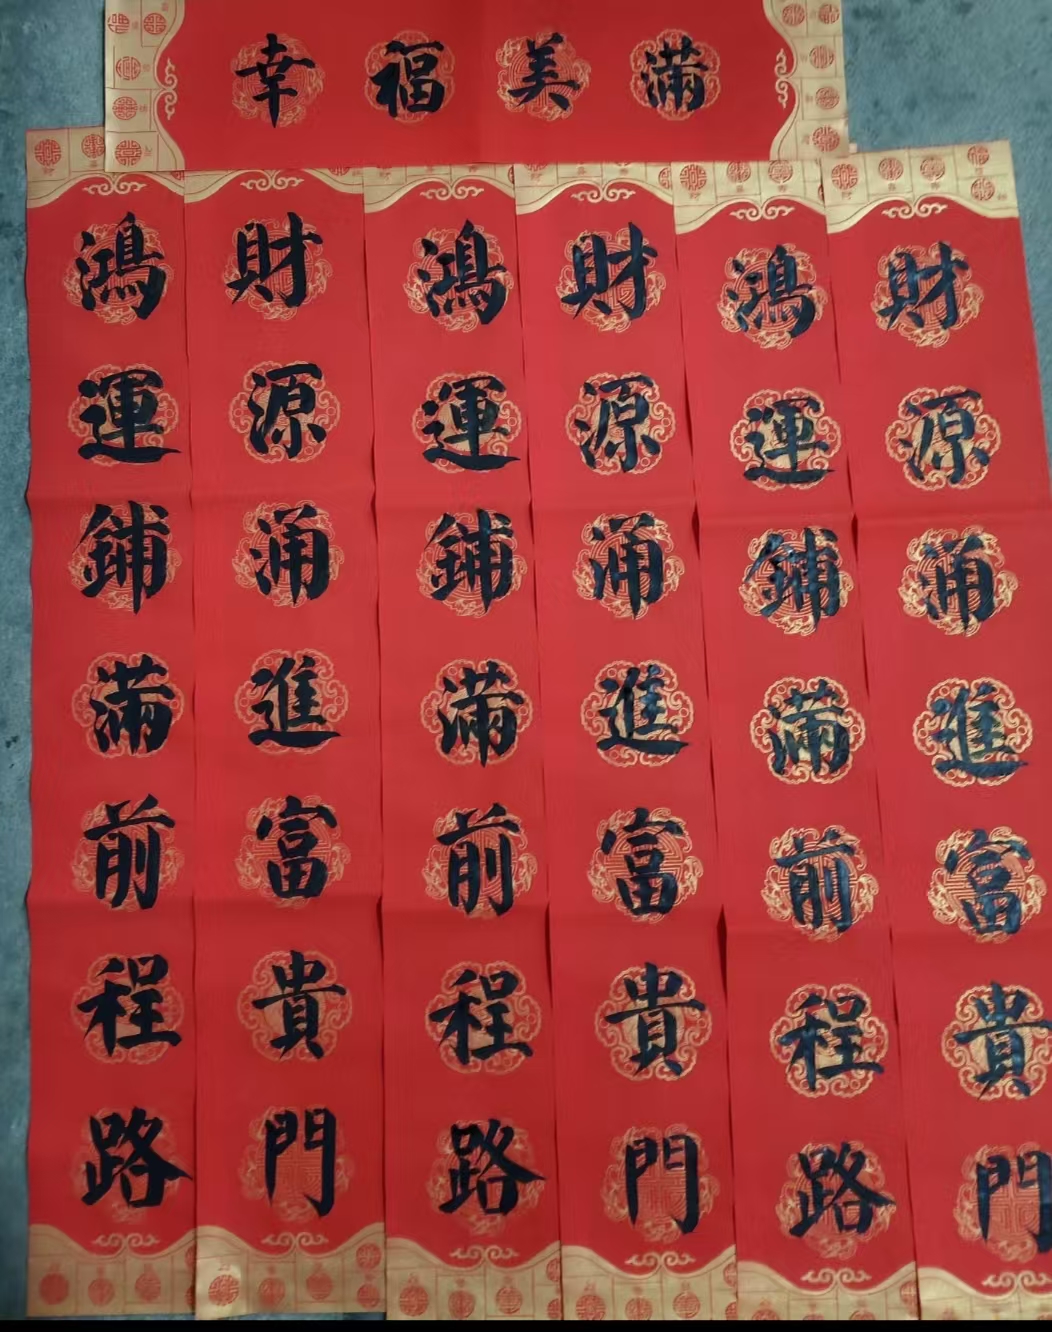 幸福美滿
鴻運鋪滿前程路
財源涌進富貴門
鴻運鋪滿前程路
財源涌進富貴門
鴻運鋪滿前程路
財源涌進富貴門